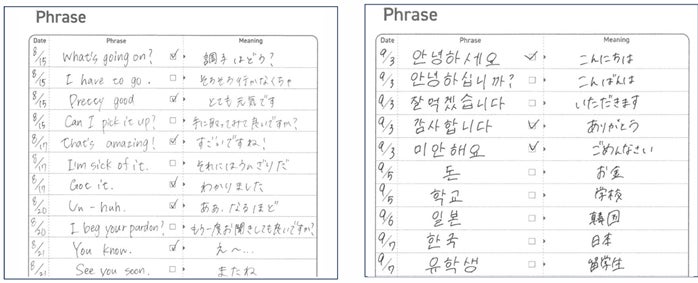 Phrase
Date Phrase Meaning
8/15 What's going on? 調子はどう?
8/15 I have to go. そろそろ行かなくちゃ
8/15 Pretty good とても元気です
8/15 Can I pick it up? 手に取ってみて良いですか?
8/17 That's amazing! すごいですね!
8/17 I'm sick of it. それにはうんざりだ
8/17 Got it. わかりました
8/20 Un-huh. ああ、なるほど
8/20 I beg your pardon? もう一度お聞きしても良いですか?
8/21 You know. え〜...
8/21 See you soon. またね
Phrase
Date Phrase Meaning
9/3 안녕하세요 こんにちは
9/3 안녕하십니까? こんばんは
9/3 잘 먹겠습니다 いただきます
9/3 감사합니다 ありがとう
9/3 미안해요 ごめんなさい
9/5 돈 お金
9/5 학교 学校
9/6 일본 韓国
9/7 한국 日本
9/7 유학생 留学生